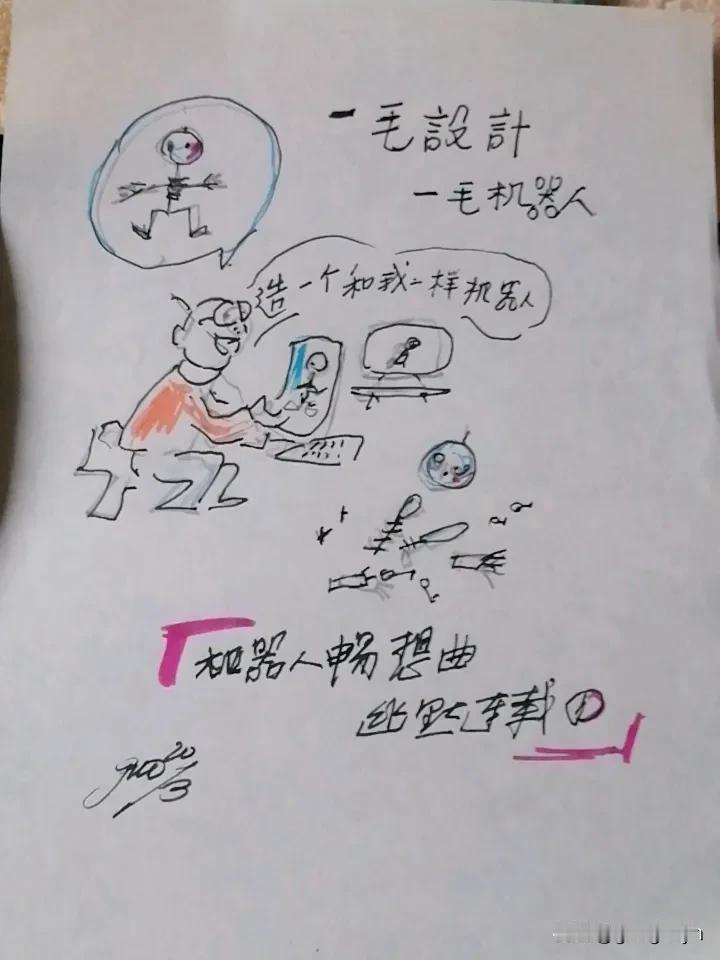 一毛設計
一毛机器人
造一个和我一样机器人
机器人畅想曲
幽默连载①
20/3